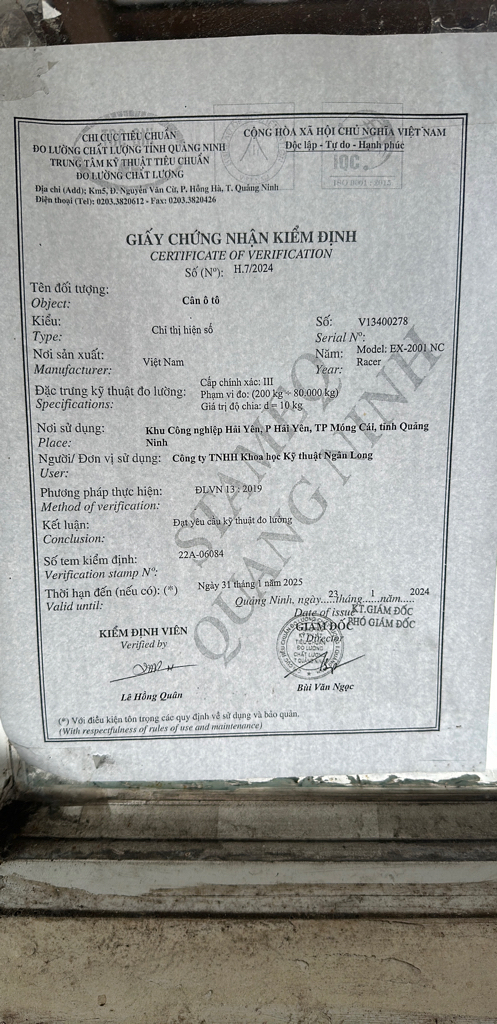 CHI CỤC TIÊU CHUẨN
ĐO LƯỜNG CHẤT LƯỢNG TỈNH QUẢNG NINH
TRUNG TÂM KỸ THUẬT TIÊU CHUẨN
ĐO LƯỜNG CHẤT LƯỢNG
Địa chỉ (Add): Km5, Đ. Nguyễn Văn Cừ, P. Hồng Hà, T. Quảng Ninh
Điện thoại (Tel): 0203.3820612 - Fax: 0203.3820426
CỘNG HÒA XÃ HỘI CHỦ NGHĨA VIỆT NAM
Độc lập - Tự do - Hạnh phúc
IQC.
ISO 9001 : 2015
GIẤY CHỨNG NHẬN KIỂM ĐỊNH
CERTIFICATE OF VERIFICATION
Số (Nº): H.7/2024
Tên đối tượng:
Object: Cân ô tô
Kiểu:
Type: Chỉ thị hiện số
Số: V13400278
Serial Nº:
Nơi sản xuất:
Manufacturer: Việt Nam
Năm: Model: EX-2001 NC
Year: Racer
Đặc trưng kỹ thuật đo lường:
Specifications:
Cấp chính xác: III
Phạm vi đo: (200 kg ÷ 80.000 kg)
Giá trị độ chia: d = 10 kg
Nơi sử dụng: Khu Công nghiệp Hải Yên, P Hải Yên, TP Móng Cái, tỉnh Quảng
Place: Ninh
Người/ Đơn vị sử dụng: Công ty TNHH Khoa học Kỹ thuật Ngân Long
User:
Phương pháp thực hiện: ĐLVN 13 : 2019
Method of verification:
Kết luận: Đạt yêu cầu kỹ thuật đo lường
Conclusion:
Số tem kiểm định: 22A-06084
Verification stamp Nº:
Thời hạn đến (nếu có): (*) Ngày 31 tháng 1 năm 2025
Valid until:
Quảng Ninh, ngày 23 tháng 1 năm 2024
Date of issue
KT.GIÁM ĐỐC
PHÓ GIÁM ĐỐC
GIÁM ĐỐC
Director
KIỂM ĐỊNH VIÊN
Verified by
Lê Hồng Quân
Bùi Văn Ngọc
(*) Với điều kiện tôn trọng các quy định về sử dụng và bảo quản.
(With respectfulness of rules of use and maintenance)
SIAMEQ
QUANG NINH